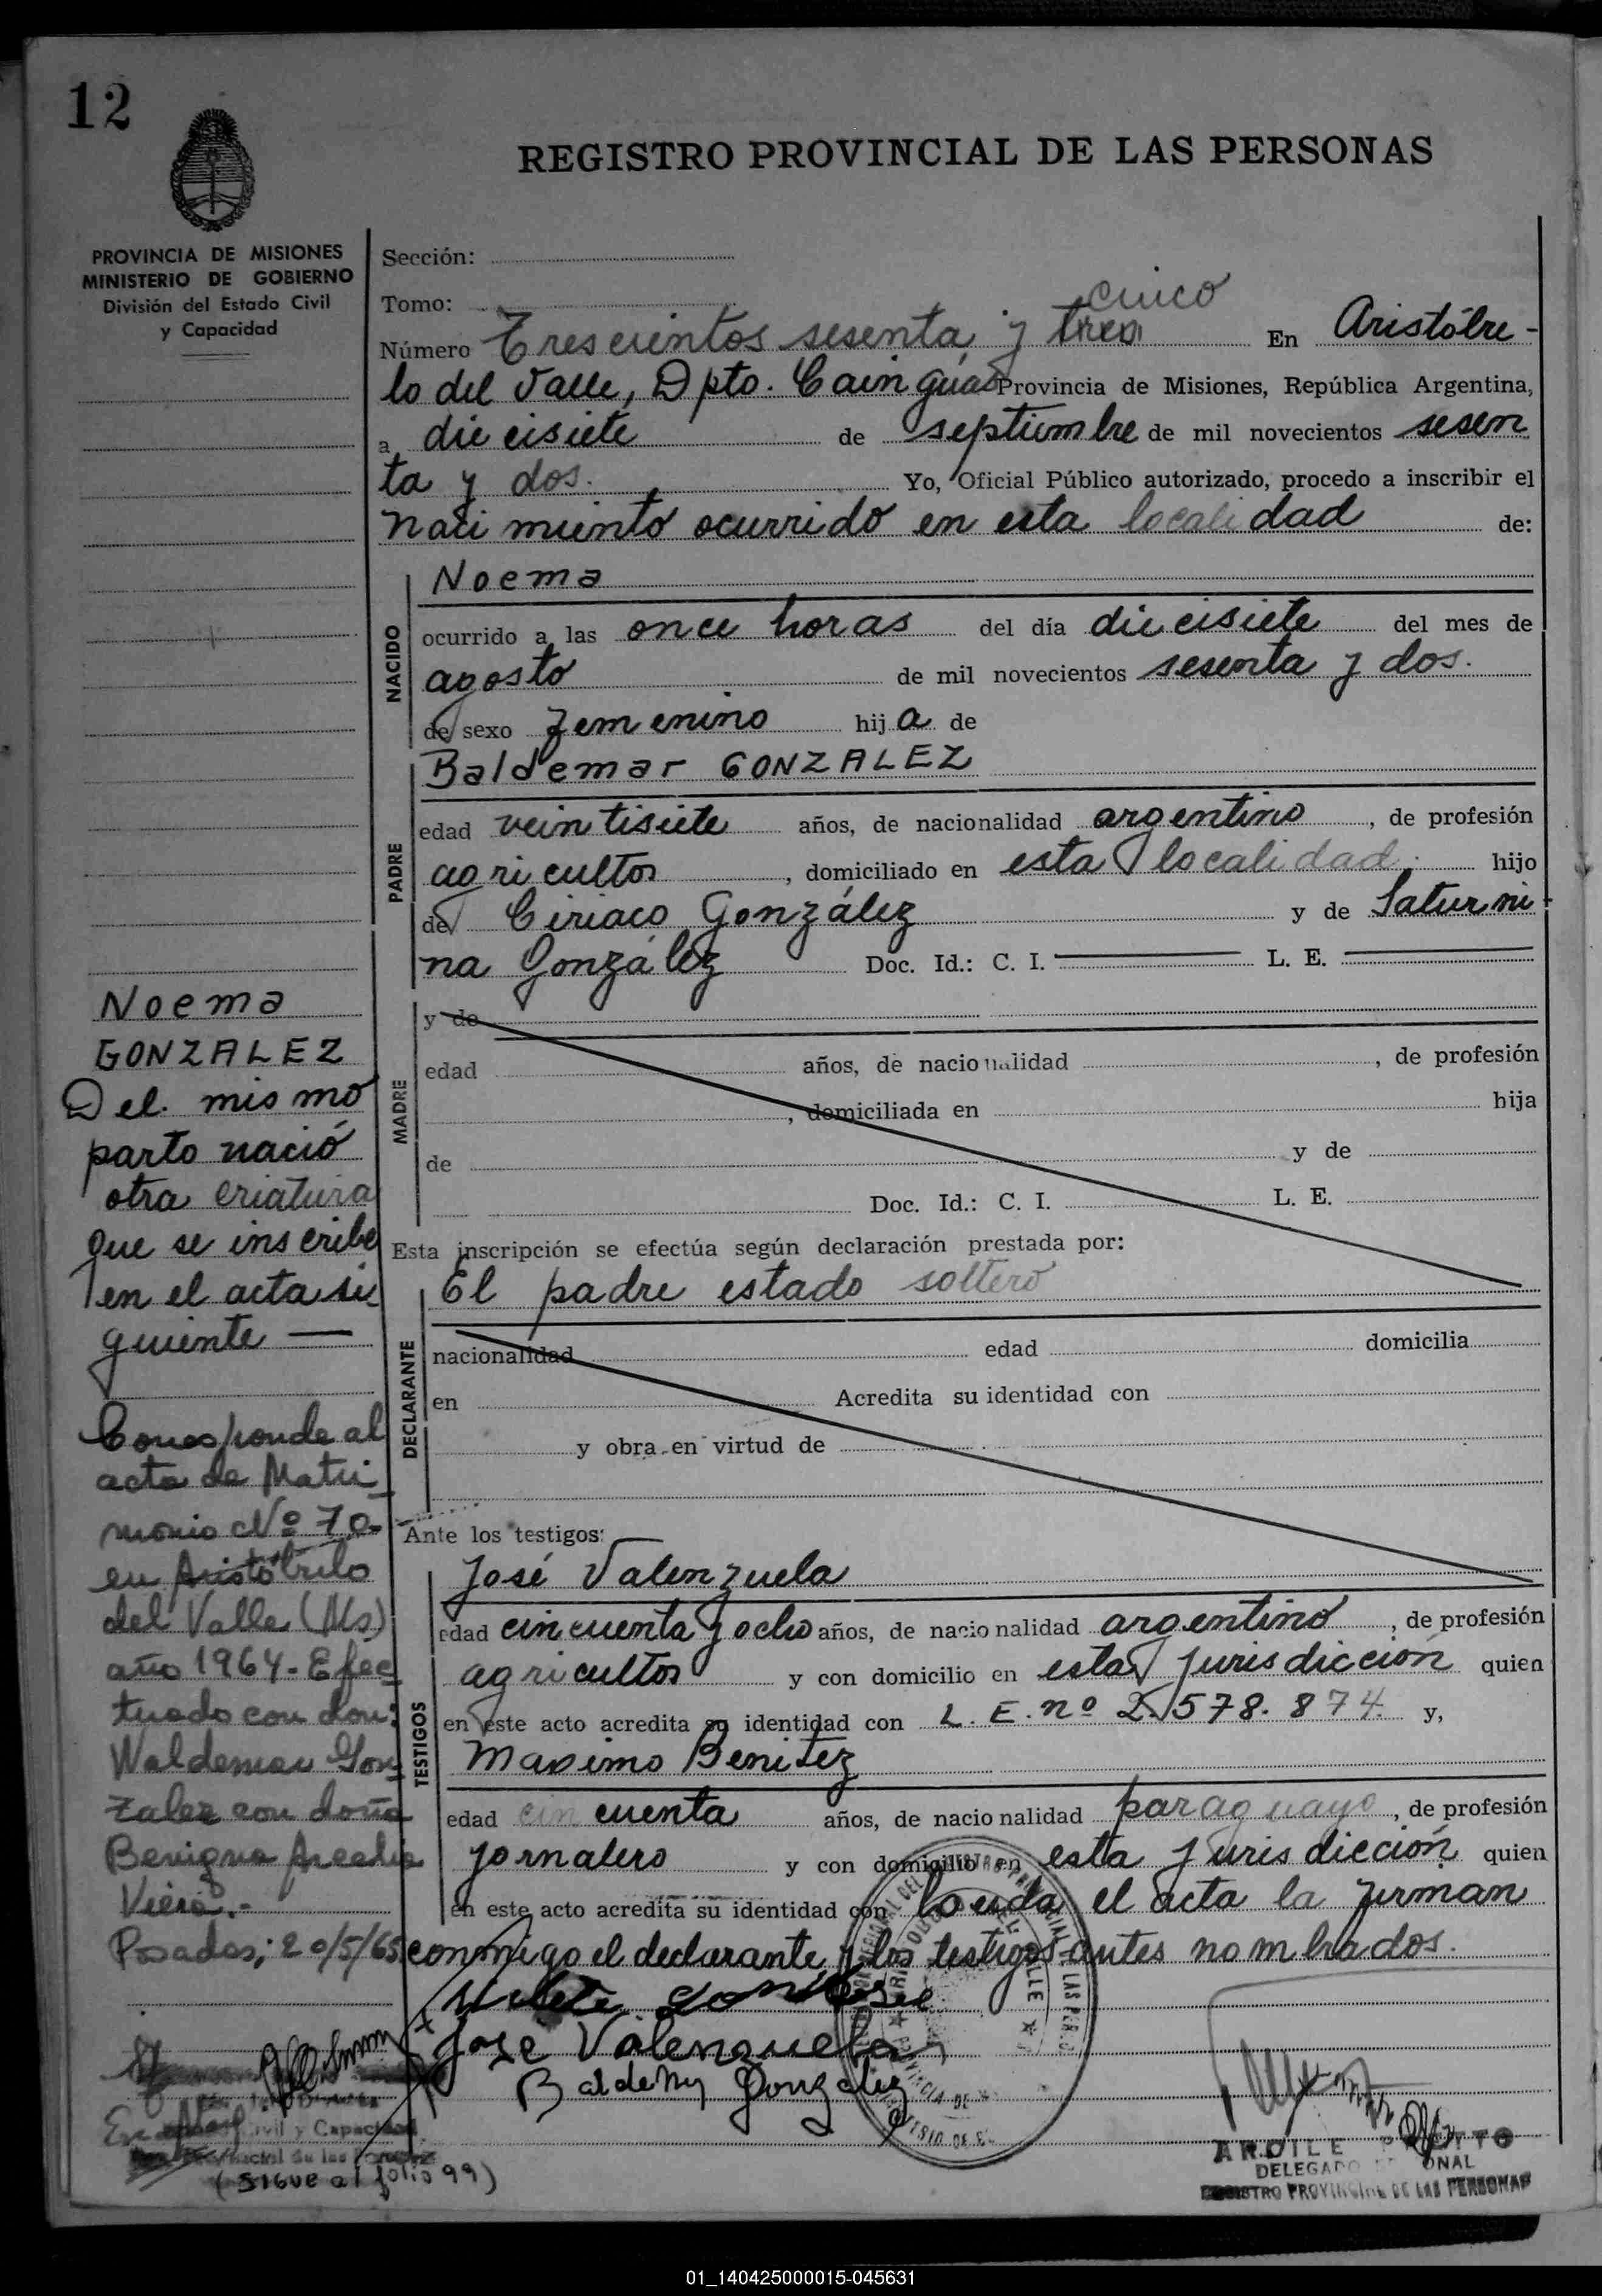 12
REGISTRO PROVINCIAL DE LAS PERSONAS
PROVINCIA DE MISIONES
MINISTERIO DE GOBIERNO
División del Estado Civil
y Capacidad
Sección:
Tomo:
cinco
Número Trescientos sesenta y tres En Aristóbu-
lo del Valle, Dpto. Cainguás Provincia de Misiones, República Argentina,
a diecisiete de septiembre de mil novecientos sesen
ta y dos. Yo, Oficial Público autorizado, procedo a inscribir el
nacimiento ocurrido en esta localidad de:
NACIDO
Noema
ocurrido a las once horas del día diecisiete del mes de
agosto de mil novecientos sesenta y dos.
de sexo femenino hija de
PADRE
Baldemar GONZALEZ
edad veintisiete años, de nacionalidad argentino, de profesión
agricultor, domiciliado en esta localidad. hijo
de Ciriaco González y de Saturni-
na González Doc. Id.: C. I. L. E.
MADRE
y de
edad años, de nacionalidad , de profesión
, domiciliada en hija
de y de
Doc. Id.: C. I. L. E.
Esta inscripción se efectúa según declaración prestada por:
DECLARANTE
El padre estado soltero
nacionalidad edad domicilia
en Acredita su identidad con
y obra en virtud de
Ante los testigos:
TESTIGOS
José Valenzuela
edad cincuenta y ocho años, de nacionalidad argentino, de profesión
agricultor y con domicilio en esta jurisdicción quien
en este acto acredita su identidad con L. E. nº 2.578.874. y,
Maximo Benitez
edad cincuenta años, de nacionalidad paraguayo, de profesión
jornalero y con domicilio en esta jurisdicción quien
en este acto acredita su identidad con Leida el acta la firman
conmigo el declarante y los testigos antes nombrados.
Jose Valenzuela
Baldemar Gonzalez
Noema
GONZALEZ
Del mismo
parto nació
otra criatura
que se inscribe
en el acta si
guiente —
Corresponde al
acta de Matri-
monio Nº 70-
en Aristóbulo
del Valle (Ms)
año 1964- Efec
tuado con don:
Waldemar Gon
zalez con doña
Benigna Arcadia
Viera.-
Posadas; 20/5/65
Civil y Capacidad
(sigue al folio 99)
DELEGADO
REGISTRO PROVINCIAL DE LAS PERSONAS
01_140425000015-045631